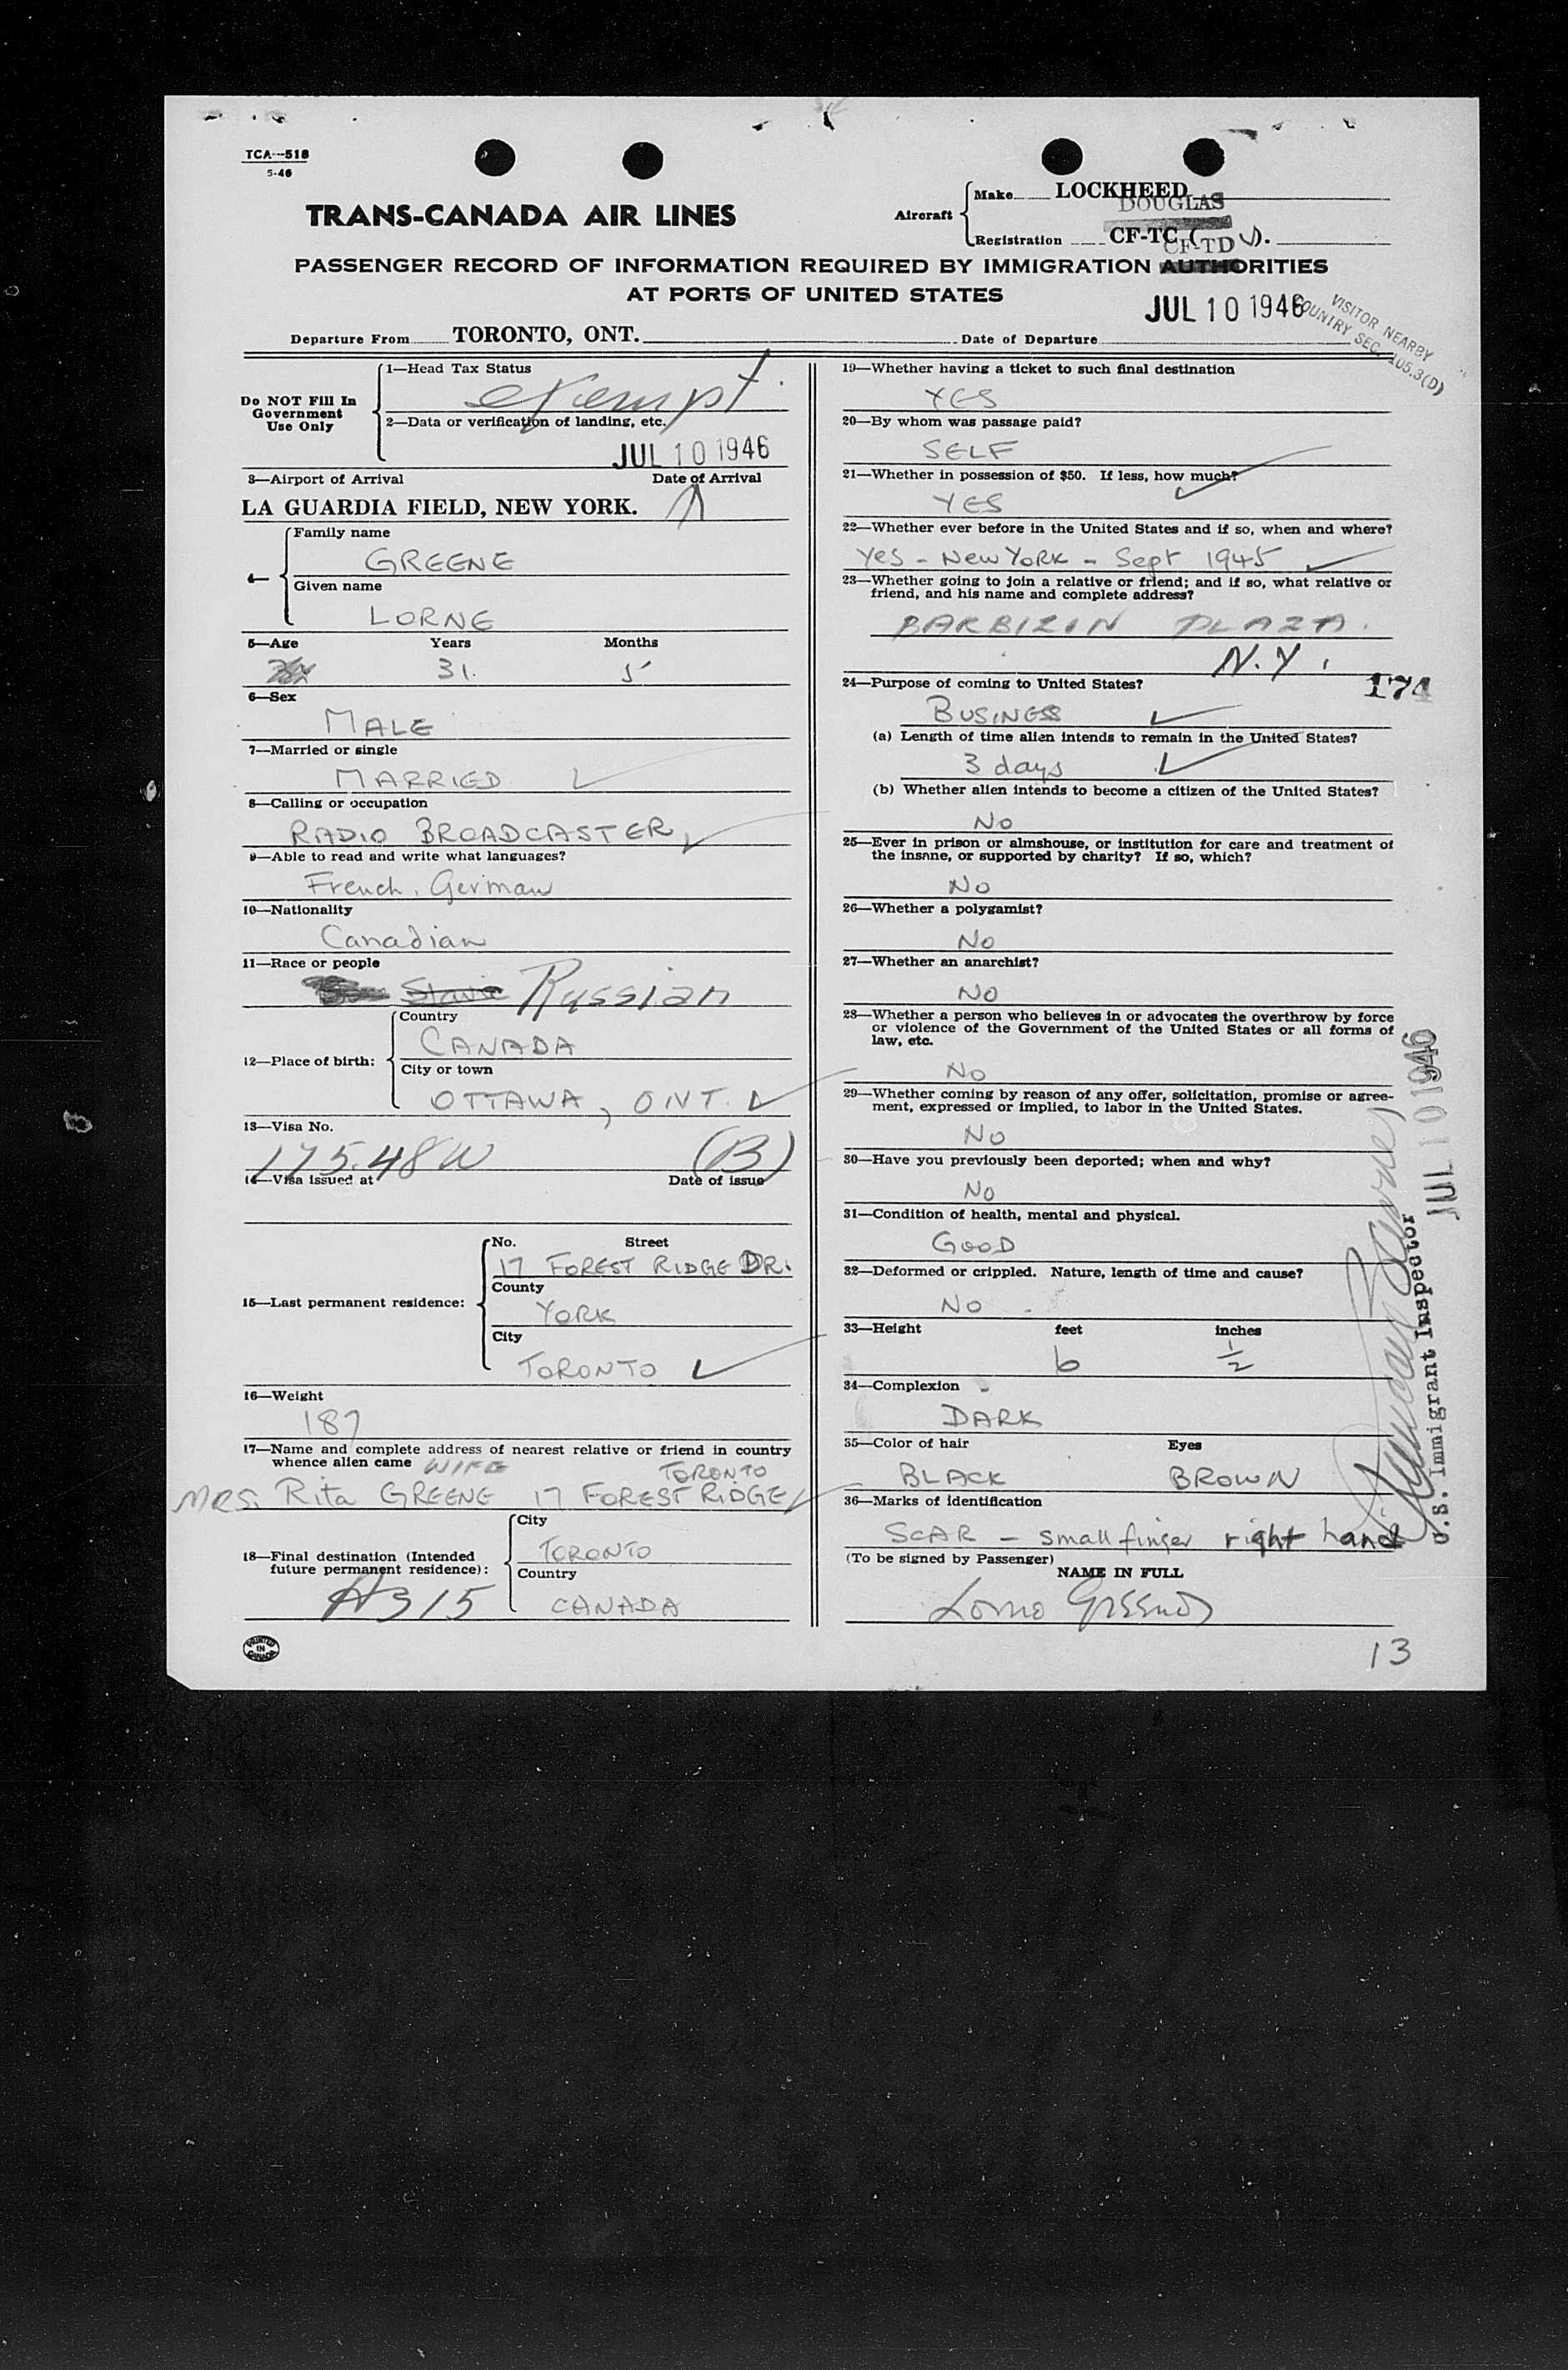 TCA—518
5-46
TRANS-CANADA AIR LINES
Aircraft
Make LOCKHEED
DOUGLAS
Registration CF-TC ( ).
CF-TD
PASSENGER RECORD OF INFORMATION REQUIRED BY IMMIGRATION AUTHORITIES
AT PORTS OF UNITED STATES
JUL 10 1946
VISITOR NEARBY
COUNTRY SEC. 105.3(D)
Departure From TORONTO, ONT.
Date of Departure
Do NOT Fill In
Government
Use Only
1—Head Tax Status
exempt
2—Data or verification of landing, etc.
JUL 10 1946
3—Airport of Arrival Date of Arrival
LA GUARDIA FIELD, NEW YORK.
4—
Family name
GREENE
Given name
LORNE
5—Age Years Months
31. 5
6—Sex
MALE
7—Married or single
MARRIED
8—Calling or occupation
RADIO BROADCASTER
9—Able to read and write what languages?
French, German
10—Nationality
Canadian
11—Race or people
Slavic Russian
12—Place of birth:
Country
CANADA
City or town
OTTAWA, ONT.
13—Visa No.
175.48W (B)
14—Visa issued at Date of issue
15—Last permanent residence:
No. Street
17 FOREST RIDGE DR.
County
YORK
City
TORONTO
16—Weight
187
17—Name and complete address of nearest relative or friend in country
whence alien came WIFE
TORONTO
MRS. Rita GREENE 17 FOREST RIDGE
18—Final destination (Intended
future permanent residence):
A315
City
TORONTO
Country
CANADA
PRINTED
IN
CANADA
19—Whether having a ticket to such final destination
YES
20—By whom was passage paid?
SELF
21—Whether in possession of $50. If less, how much?
YES
22—Whether ever before in the United States and if so, when and where?
Yes - New York - Sept 1945
23—Whether going to join a relative or friend; and if so, what relative or
friend, and his name and complete address?
BARBIZIN PLAZA.
N.Y.
174
24—Purpose of coming to United States?
BUSINESS
(a) Length of time alien intends to remain in the United States?
3 days
(b) Whether alien intends to become a citizen of the United States?
No
25—Ever in prison or almshouse, or institution for care and treatment of
the insane, or supported by charity? If so, which?
No
26—Whether a polygamist?
No
27—Whether an anarchist?
No
28—Whether a person who believes in or advocates the overthrow by force
or violence of the Government of the United States or all forms of
law, etc.
No
29—Whether coming by reason of any offer, solicitation, promise or agree-
ment, expressed or implied, to labor in the United States.
No
30—Have you previously been deported; when and why?
No
31—Condition of health, mental and physical.
GOOD
32—Deformed or crippled. Nature, length of time and cause?
No
33—Height feet inches
6 1/2
34—Complexion
DARK
35—Color of hair Eyes
BLACK BROWN
36—Marks of identification
SCAR - small finger right hand
(To be signed by Passenger)
NAME IN FULL
Lorne Greene
13
JUL 10 1946
U.S. Immigrant Inspector